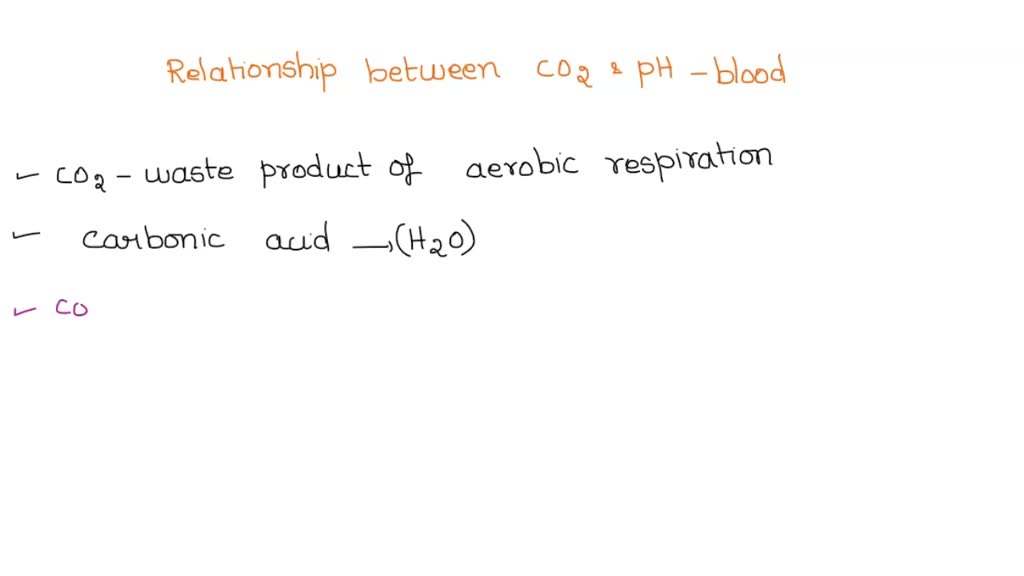 Relationship between CO2 & pH - blood
CO2 - waste product of aerobic respiration
carbonic acid →(H2O)
CO